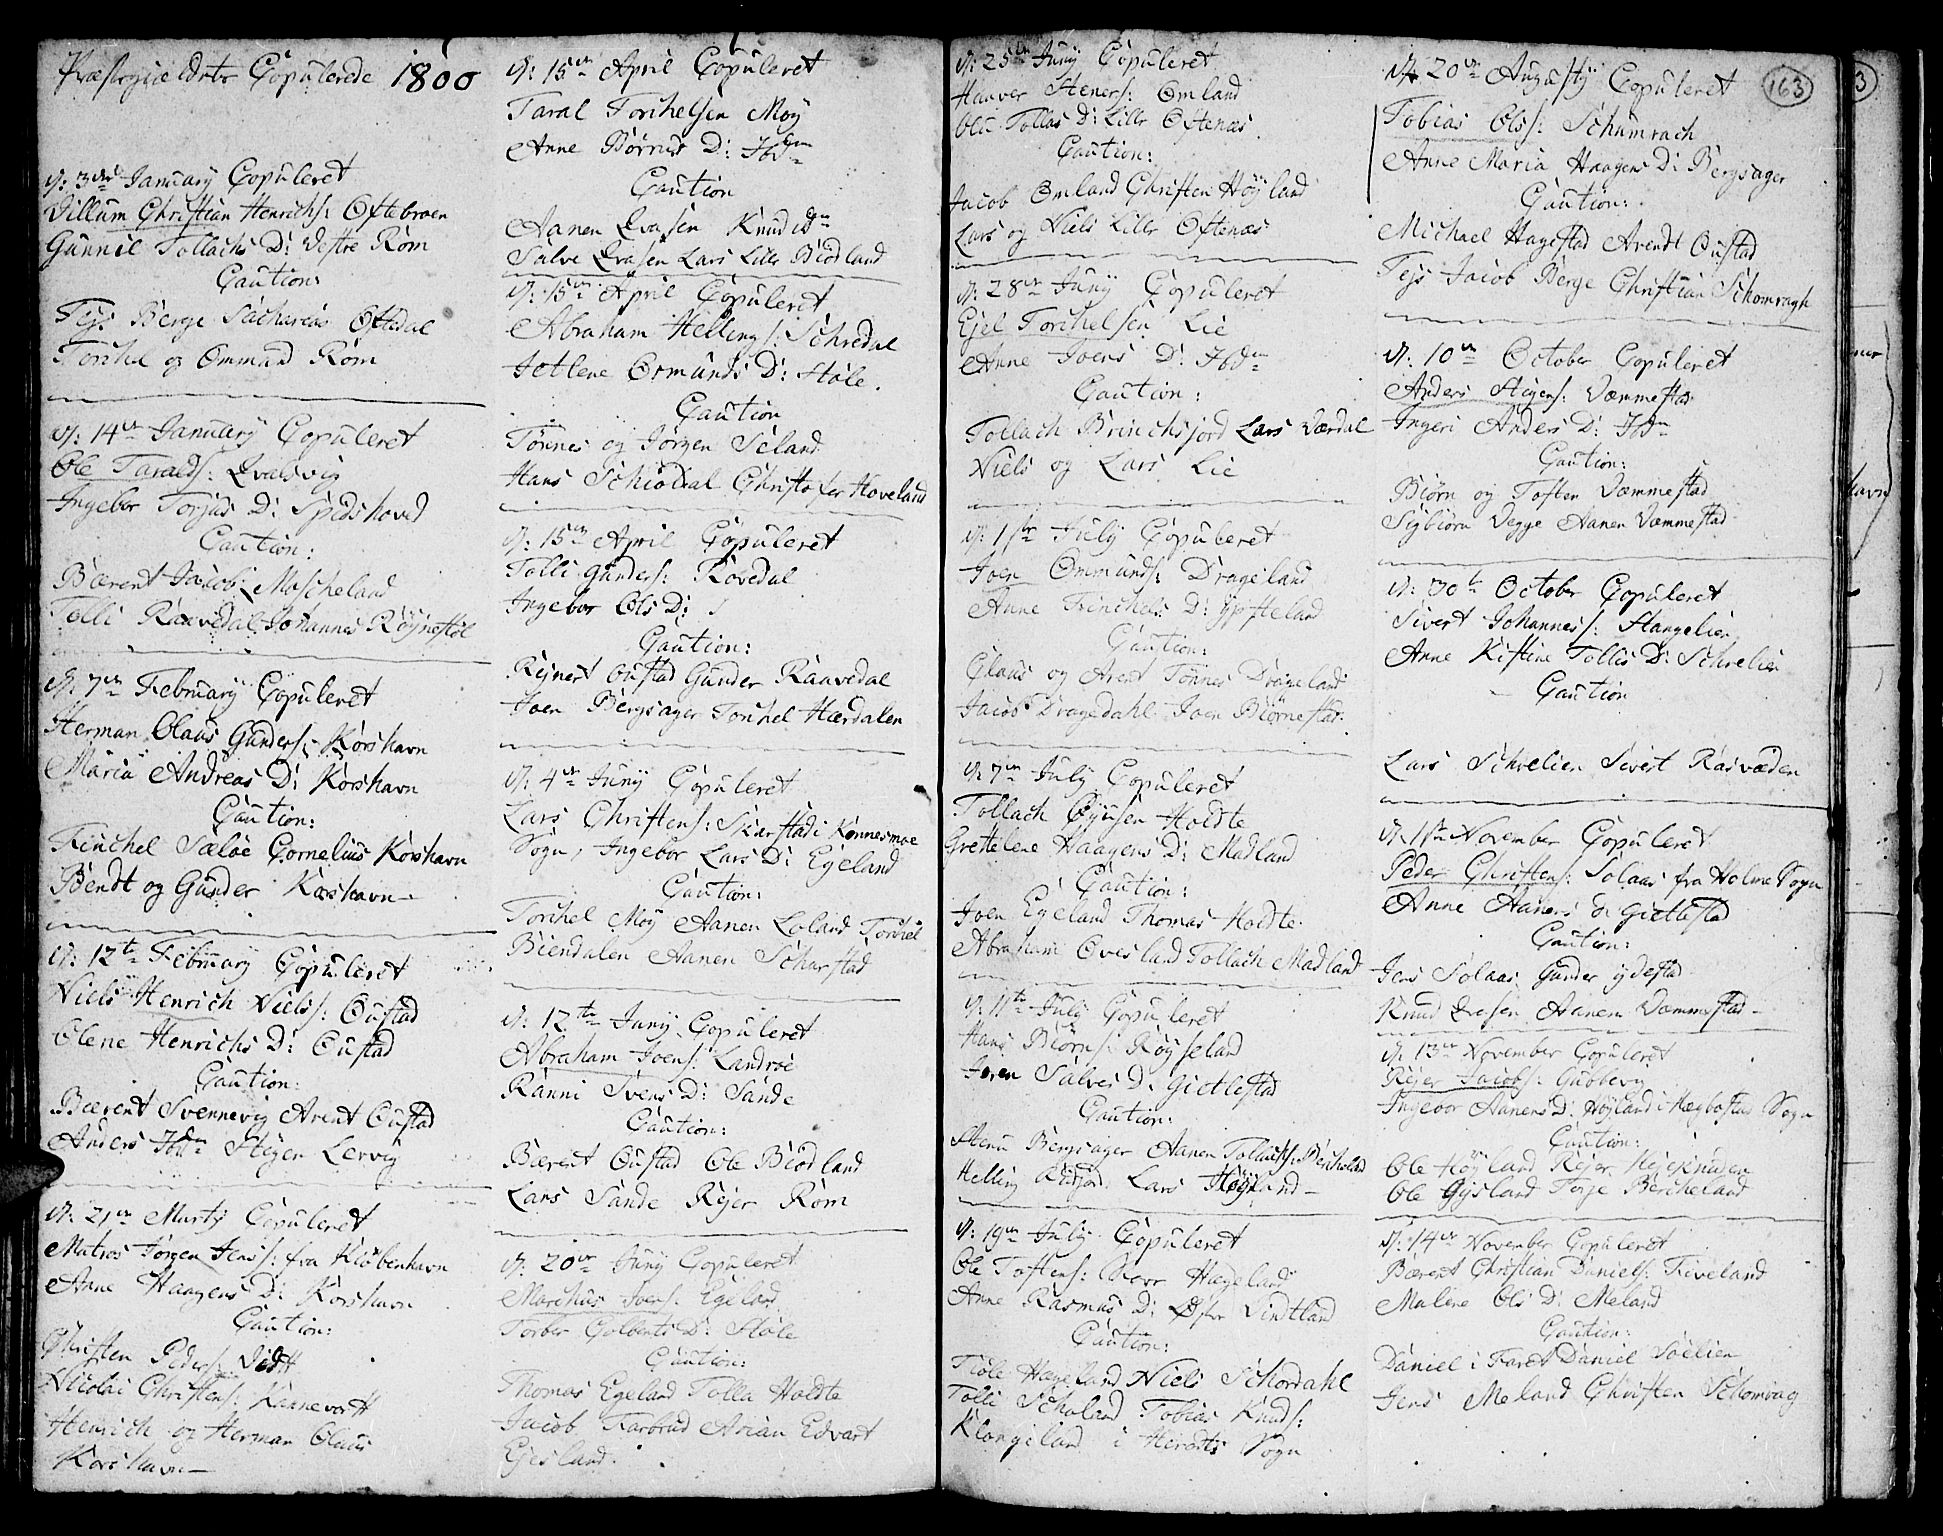 Præstegieldets Copulerede 1800
d: 3die January Copuleret
Villum Christian Henrichs: Oftebroen
Gunnil Tollachs D: Vestre Røm
Caution:
Tejs Berge Sacharias Oftedal
Torchel og Ommund Røm
d: 14de January Copuleret
Ole Taralds: Qvalsvig
Ingebor Torjus D: Spidshoved
Caution:
Bærent Jacobs: Moscheland
Tolli Raavedal Johannes Røjnestøl
d: 7de February Copuleret
Herman Claus Gunders: Korshavn
Maria Andreas D: Korshavn
Caution:
Finchel Sæløe Cornelius Korshavn
Bendt og Gunder Korshavn
d: 12te February Copuleret
Niels Henrich Niels: Oustad
Elene Henrichs D: Oustad
Caution:
Bærent Svennevig Arent Oustad
Anders Ibdm Steger Lervig
d: 21de Marty Copuleret
Matros Jørgen Jens: fra Kiøbenhavn
Anne Haagens D: Korshavn
Caution:
Christen Peders:
Nicolai Christens: Kannevorft
Henrich og Herman Claus
Korshavn
d: 15de April Copuleret
Taral Torchelsen Moy
Anne Børrus D: Ibdm
Caution
Aanen Qvasen Knud Ibdm
Salve Qvasen Lars Lille Biodland
d: 15de April Copuleret
Abraham Hellings: Schredal
Jetlene Ormunds D: Støle.
Caution
Tønnes og Jørgen Seland
Hans Schiødal Christofer Hoveland
d: 15de April Copuleret
Tolli Gunders: Rovedal
Ingebor Ols D:
Caution:
Rejnert Oustad Gunder Raavedal
Joen Bergsager Torchel Hærdalen
d: 4de Juny Copuleret
Lars Christens: Skarstad i Konnesmoe
Sogn, Ingebor Lars D: Egeland
Caution:
Torchel Moy Aanen Loland Torchel
Biendalen Aanen Scharstad
d: 12te Juny Copuleret
Abraham Joens: Landroe
Ranni Svens D: Sande
Caution:
Bærent Oustad Ole Biodland
Lars Sande Rejer Røm
d: 20de Juny Copuleret
Marchus Joens: Egeland
Torber Golberts D: Støle
Caution:
Thomas Egeland Tolla Holdte
Jacob Farbrud Arian Edvart
Ejesland.
d: 25de Juny Copuleret
Haaver Steners: Omland
Olu Tollas D: Lille Oftenæs
Caution:
Jacob Omland Christen Høyland
Lars og Niels Lille Oftenæs
d: 28de Juny Copuleret
Ejel Torchelsen Lie
Anne Joens D: Ibdm
Caution:
Tollach Brinchsjord Lars Værdal
Niels og Lars Lie
d: 1ste July Copuleret
Joen Ommunds: Drageland
Anne Frinchels D: Ypsteland
Caution:
Claus og Arent Tønnes Drageland
Jacob Dragedahl Joen Biørnestad
d: 7de July Copuleret
Tollach Øynsen Holdte
Grettelene Haagens D: Madland
Caution:
Joen Egeland Thomas Holdte
Abraham Ovesland Tollach Madland
d: 11te July Copuleret
Hans Biørns: Røyseland
Joren Salves D: Gietlestad
Caution:
Stenu Bergsager Aanen Tollachs: Bercheland
Helling Lars Høyland
d: 19de July Copuleret
Ole Toftens: Hægeland
Anne Rasmus D: Øfre Vindtland
Caution:
Tiøle Hægeland Niels Schordahl
Tolli Scholand Tobias Knuds:
Klongeland i Herods Sogn
163
d: 20de Augusty Copuleret
Tobias Ols: Schumrach
Anne Maria Haagens D: Bergsager
Caution:
Michael Hagestad Arendt Oustad
Tejs Jacob Berge Christian Schomragh
d: 10de October Copuleret
Anders Stigens: Væmmestad
Ingeri Anders D: Ibdm
Caution:
Biørn og Toften Væmmestad
Sigbiørn Vegge Aanen Væmmestad
d: 30te October Copuleret
Sivert Johannes: Stangelien
Anne Kistine Tollis D: Schrelien
Caution
Lars Schrelien Sivert Rasvæden
d: 11te November Copuleret
Peder Christens: Solaas fra Holme Sogn
Anne Aanens D: Gietlestad
Caution:
Jens Solaas Gunder Ydestad
Knud Qvasen Aanen Væmmestad
d: 13de November Copuleret
Rejer Jacobs: Gubbevig
Ingebor Aanens D: Høyland i Hægbostad Sogn
Caution:
Ole Høyland Rejer
Ole Gysland Terje Bercheland
d: 14de November Copuleret
Bærent Christian Daniels: Fiveland
Malene Ols D: Meland
Caution:
Daniel i Faret Daniel Soelien
Jens Meland Christen Schomrag